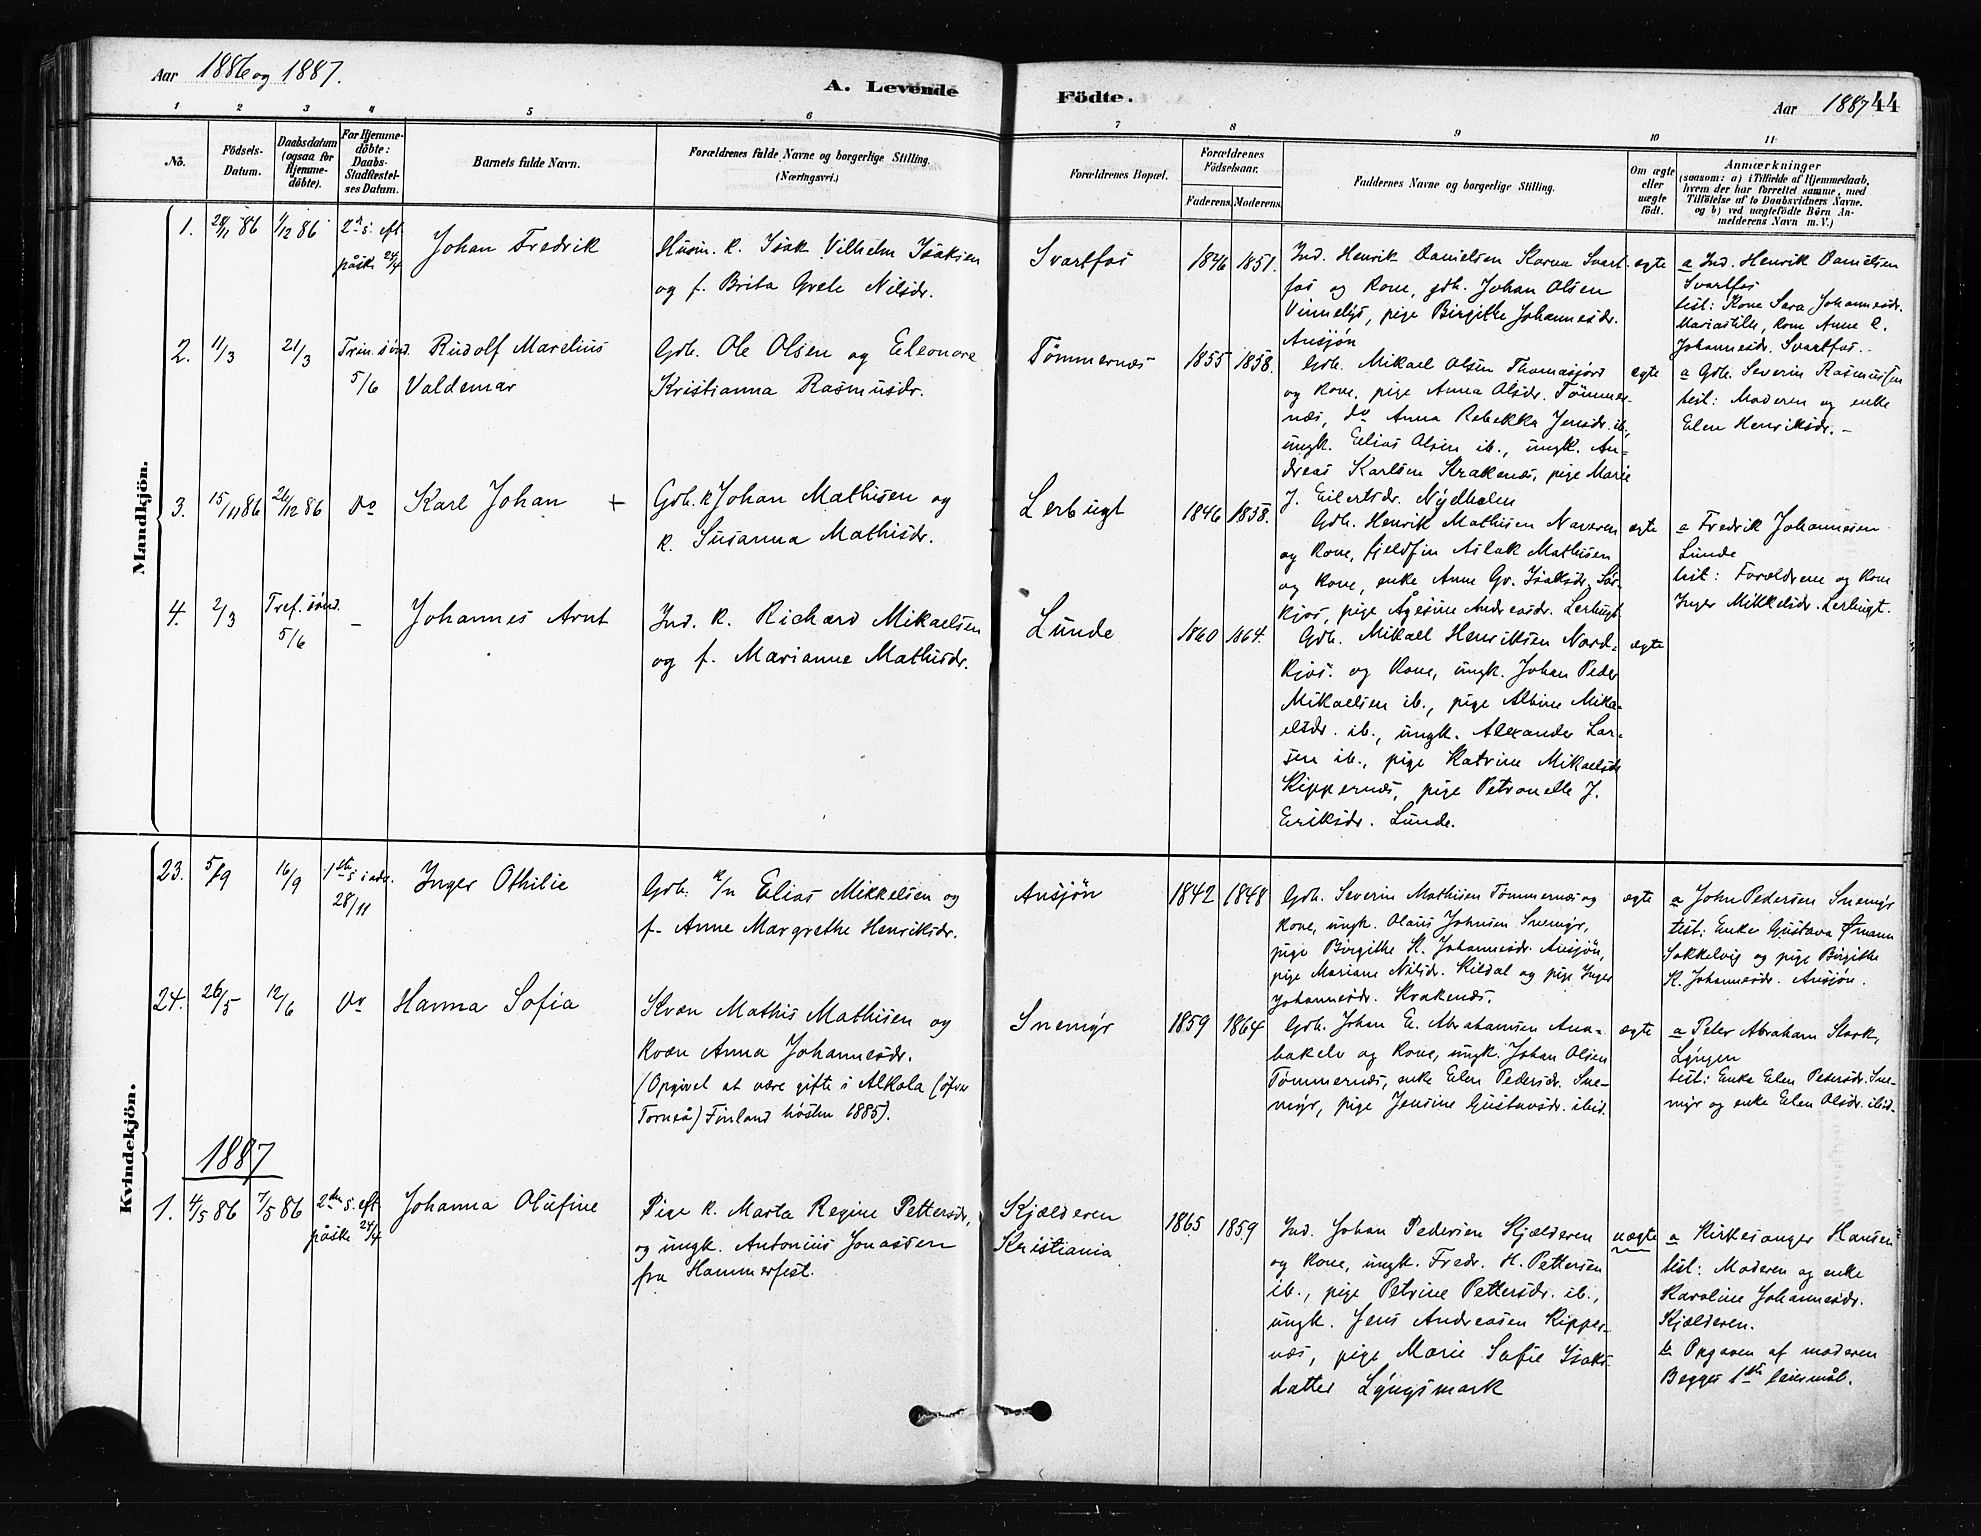 Aar 1886 og 1887.
A. Levende
Födte.
Aar 1887 44
1 2 3 4 5 6 7 8 9 10 11
No.
Födsels-
Datum.
Daabsdatum
(ogsaa for
Hjemme-
döbte).
For Hjemme-
döbte:
Daabs-
Stadfæstel-
ses Datum.
Barnets fulde Navn.
Forældrenes fulde Navne og borgerlige Stilling.
(Næringsvei.)
Forældrenes Bopæl.
Forældrenes
Födselsaar.
Faderens. Moderens.
Faddernes Navne og borgerlige Stilling.
Om ægte
eller
uægte
födt.
Anmærkninger
(saasom: a) i Tilfælde af Hjemmedaab,
hvem der har forrettet samme, med
Tilföielse af to Daabsvidners Navne.
og b) ved uægtefödte Börn An-
melderens Navn m. V.)
Mandkjön.
1. 28/11 86 1/12 86 2n s. eft
påske 24/4
Johan Fredrik
Husm. k. Isak Vilhelm Isaksen
og f. Brita Grete Nilsdr.
Svartfos
1846 1851.
Ind. Henrik Danielsen Karna Svart-
fos og Kone, gdb. Johan Olsen
Vinnelys, pige Birgithe Johannesdr.
Ansjön
ægte
a Ind. Henrik Danielsen
Svartfos
test: Kone Sara Johannesdr.
Mariastille, kone Anne C.
Johannesdr. Svartfos.-
2. 11/3 21/3 Trin. sönd.
5/6
Rudolf Marelius
Valdemar
Gdb. Ole Olsen og Eleonore
Kristianna Rasmusdr.
Tömmernæs
1855 1858.
Gdb. Mikael Olsen Thomasjord
og Kone, pige Anna Olsdr. Tömmer-
næs, do Anna Rebekka Jensdr. ib.,
ungk. Elias Olsen ib., ungk. An-
dreas Karlsen Krakenes, pige Marie
J. Eilertsdr. Nyidholm
ægte
a Gdb. Severin Rasmussen
test: Moderen og enke
Elen Henriksdr. -
3. 15/11 86 26/12 86 Do
Karl Johan +
Gdb. k Johan Mathisen og
k. Susanna Mathisdr.
Lerbugt
1846 1858.
Gdb. Henrik Mathisen Naveren
og Kone, fjeldfin Aslak Mathisen
og Kone, enke Anne Gr. Isaksdr. Sör-
kjos, pige Ågesine Andreasdr. Lerbugt
ægte
a Fredrik Johannesen
Lunde
test: Forældrene og Kone
Inger Mikkelsdr. Lerbugt.
4. 2/3 Tref. sönd.
5/6
-
Johannes Arnt
Ind. k. Richard Mikaelsen
og f. Marianne Mathisdr.
Lunde
1860 1864.
Gdb. Mikael Henriksen Nord-
kjos. og Kone, ungk. Johan Peder
Mikaelsen ib., pige Albine Mika-
elsdr. ib., ungk. Alexander Lar-
sen ib., pige Katrine Mikaelsdr
Kippernæs, pige Petronelle J.
Eriksdr. Lunde.
ægte
Kvindekjön.
23. 5/9 16/9 1ste s i adv.
28/11
Inger Othilie
Gdb. k/n Elias Mikkelsen og
f. Anne Margrethe Henriksdr.
Ansjön
1842 1848
Gdb. Severin Mathisen Tömmernæs og
Kone, ungk. Olaus Johnsen Snemyr,
pige Birgithe K. Johannesdr. Ansjön,
pige Mariane Nilsdr. Kildal og pige Inger
Johannesdr. Krakenæs.
ægte
a John Pedersen Snemyr
test: Enke Gustava Ømann
Sokkelvig og pige Birgithe
K. Johannesdr. Ansjön.
24. 26/5 12/6 Do
Hanna Sofia
Kvæn Mathis Mathisen og
kvæn Anna Johannesdr.
(Opgivet at være gifte i Alkola (öfver
Torneå) Finland hösten 1885).
Snemyr
1859 1864
Gdb. Johan E. Abrahamsen Ana-
bakelv og Kone, ungk. Johan Olsen
Tömmernæs, enke Elen Pedersdr. Sne-
myr, pige Jensine Gustavsdr. ibid.
ægte
a Peter Abraham Stark,
Lyngen
test: Enke Elen Pedersdr. Sne-
myr og enke Elen Olsdr. ibid.
1887
1. 4/5 86 7/5 86 2den s. eft
påske 24/4
Johanna Olufine
Pige k. Marta Regine Pettersdr,
og ungk. Antonius Jonassen
fra Hammerfest.
Kjælderen
Kristiania
1865 1859
Ind. Johan Pedersen Kjælderen
og Kone, ungk. Fredr. H. Pettersen
ib., pige Petrine Pettersdr. ib.,
ungk. Jens Andreasen Kipper-
næs, pige Marie Sofie Isaks-
datter Lyngsmark
uægte
a Kirkesanger Hansen
test: Moderen og enke
Karoline Johannesdr.
Kjælderen.
b Opgaven af moderen
Begges 1ste leiermål.